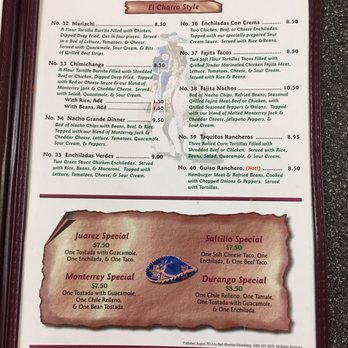 El Charro Style
No. 32 Mariachi 8.50
A Flour Tortilla Burrito Filled with Chicken,
Dipped Deep Fried, Cut in four pieces. Served
in a Bed of Lettuce, Tomatoes, & Cheese.
Served with Guacamole, Sour Cream, & Bits
of Grilled Beef Strips.
No. 33 Chimichanga 8.50
A Flour Tortilla Burrito Filled with Shredded
Beef or Chicken, Dipped Deep Fried. Topped
with our Red or Cheese Sauce & our blend of
Monterrey Jack & Cheddar Cheese. Served with
Salad, Guacamole, & Sour Cream.
With Rice, Add 1.50
With Beans, Add 1.50
No. 34 Nacho Grande Dinner 9.50
Bed of Nacho Chips with Beans, Beef, & Rice.
Topped with our blend of Monterrey Jack
& Cheddar Cheese. Served with Lettuce,
Tomatoes, & Sour Cream.
No. 35 Enchiladas Verdes 9.50
Two Green Sauce Chicken Enchiladas. Served
with Rice, Beans, & Macaroni. Topped with
Lettuce, Tomatoes, Cheese, & Sour Cream.
No. 36 Enchiladas Con Crema 8.50
Two Chicken, Beef, or Cheese Enchiladas.
Topped with our specially prepared Sour
Cream Sauce. Served with Rice & Beans.
No. 37 Fajita Tacos 8.50
Two Soft Flour Tortillas Tacos Filled with
Grilled Tender Marinated Chicken Fajita Meat.
Served with Rice, Lettuce, Tomatoes, Cheese,
Guacamole, & Sour Cream.
No. 38 Fajita Nachos 10.50
Bed of Nacho Chips, Refried Beans, Seasoned
Grilled Fajita Meat Beef or Chicken, with
Grilled Seasoned Peppers & Onions. Topped
with our blend of Monterrey Jack &
Cheddar Cheese, Jalapeño Peppers, &
Sour Cream.
No. 39 Taquitos Rancheros 8.95
Three Rolled Corn Tortillas Filled with
Shredded Beef or Chicken. Served with Rice,
Beans, Salad, Guacamole, & Sour Cream.
No. 40 Guiso Ranchero, (Hot!) 8.50
Hamburger Meat & Refried Beans, Cooked
with Chopped Onions & Peppers. Served
with Tortillas.
Juarez Special
$7.50
One Tostada with Guacamole,
One Enchilada, & One Taco.
Saltillo Special
$7.50
One Soft Cheese Taco, One
Enchilada, & One Beef Taco.
Monterrey Special
$7.50
One Tostada with Guacamole,
One Chile Relleno,
& One Bean Tostada.
Durango Special
$8.50
One Chile Relleno, One Tamale,
One Tostada with Guacamole,
& One Enchilada.